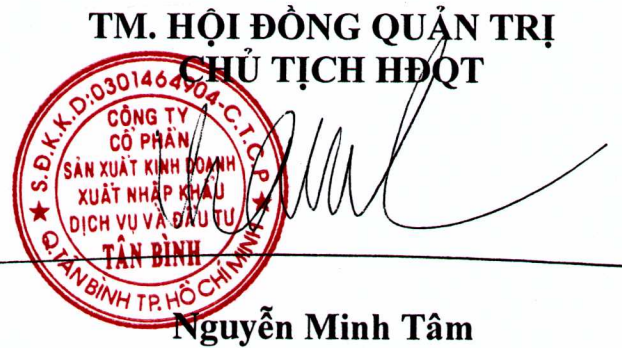 TM. HỘI ĐỒNG QUẢN TRỊ
CHỦ TỊCH HĐQT
S.Đ.K.K.D:0301464904-C.T.C.P
CÔNG TY
CỔ PHẦN
SẢN XUẤT KINH DOANH
XUẤT NHẬP KHẨU
DỊCH VỤ VÀ ĐẦU TƯ
TÂN BÌNH
Q.TÂN BÌNH TP. HỒ CHÍ MINH
Nguyễn Minh Tâm